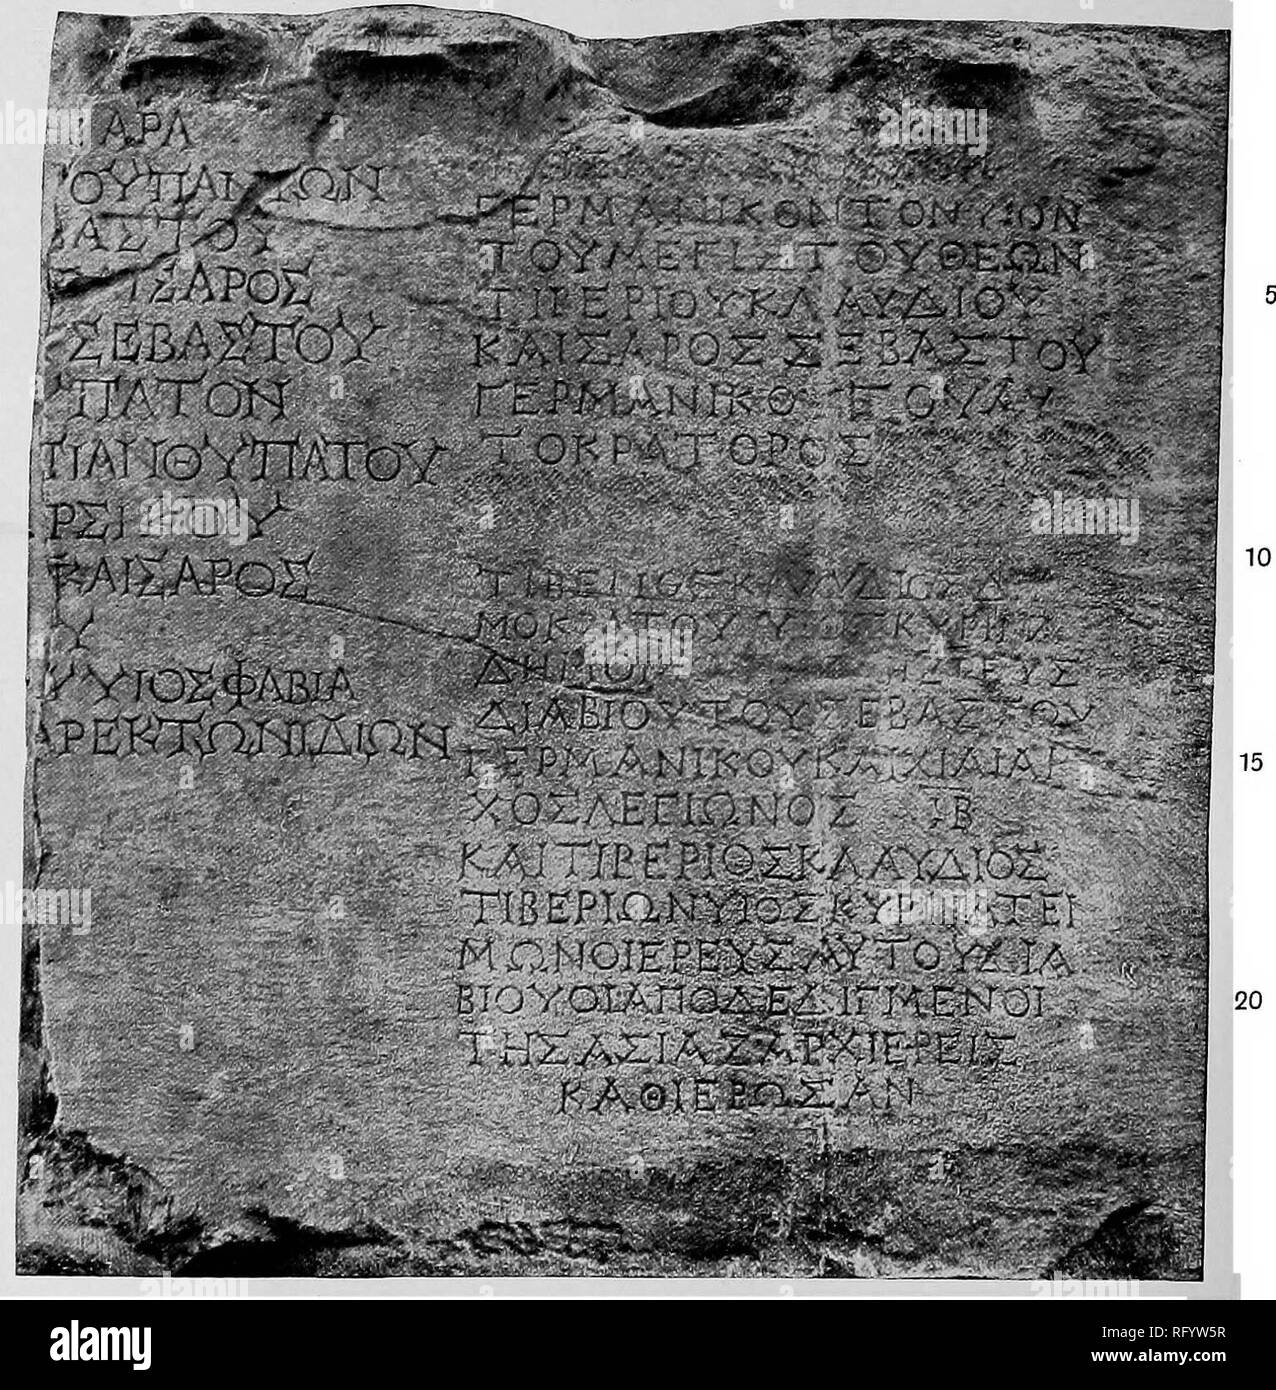 ΑΡΛ
ΟΥΠΑΝΤΩΝ
ΑΣΤΟΥ
ΣΑΡΟΣ
ΣΕΒΑΣΤΟΥ
ΠΑΤΟΝ
ΠΑΤΟΥ
ΚΑΙΣΑΡΟΣ
Υ
ΥΥΙΟΣΦΑΒΙΑ
ΑΡΕΚΤΩΝΙΔΙΩΝ
ΓΕΡΜΑΝΙΚΟΝΤΟΝΥΙΟΝ
ΤΟΥΜΕΓΙΣΤΟΥΘΕΩΝ
ΤΙΒΕΡΙΟΥΚΛΑΥΔΙΟΥ
ΚΑΙΣΑΡΟΣΣΕΒΑΣΤΟΥ
ΓΕΡΜΑΝΙΚΟΥΤΟΥΑΥ
ΤΟΚΡΑΤΟΡΟΣ
ΤΙΒΕΡΙΟΣΚΛΑΥΔΙΟΣΔ
ΔΙΑΒΙΟΥΤΟΥΣΕΒΑΣΤΟΥ
ΓΕΡΜΑΝΙΚΟΥΚΑΙΧΙΛΙΑΡ
ΧΟΣΛΕΓΙΩΝΟΣ ΙΒ
ΚΑΙΤΙΒΕΡΙΟΣΚΛΑΥΔΙΟΣ
ΤΙΒΕΡΙΩΝΥΙΟΣΚΥΡΠΑΤΕΙ
ΜΩΝΟΙΕΡΕΥΣΑΥΤΟΥΔΙΑ
ΒΙΟΥΟΙΑΠΟΔΕΔΙΓΜΕΝΟΙ
ΤΗΣΑΣΙΑΣΑΡΧΙΕΡΕΙΣ
ΚΑΘΙΕΡΩΣΑΝ
5
10
15
20
alamy
RFYW5R
www.alamy.com